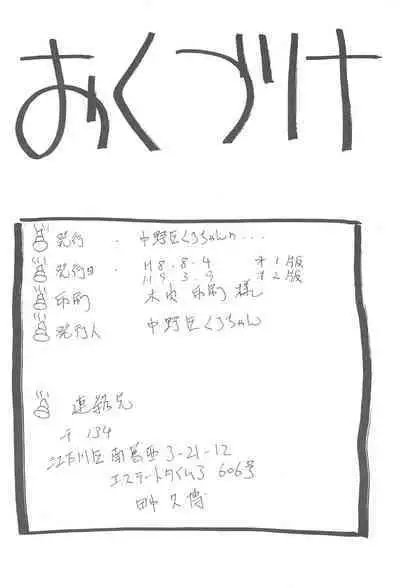 おくづけ
発行 ・ 中野区くろちゃんの・・・
発行日・ H8.8.4 オ1版
H9.3.9 オ2版
印刷 木 印刷 様
発行人 中野区くろちゃん
連絡先
〒 134
江戸川区南葛西3-21-12
エステート 606号
田中 久博